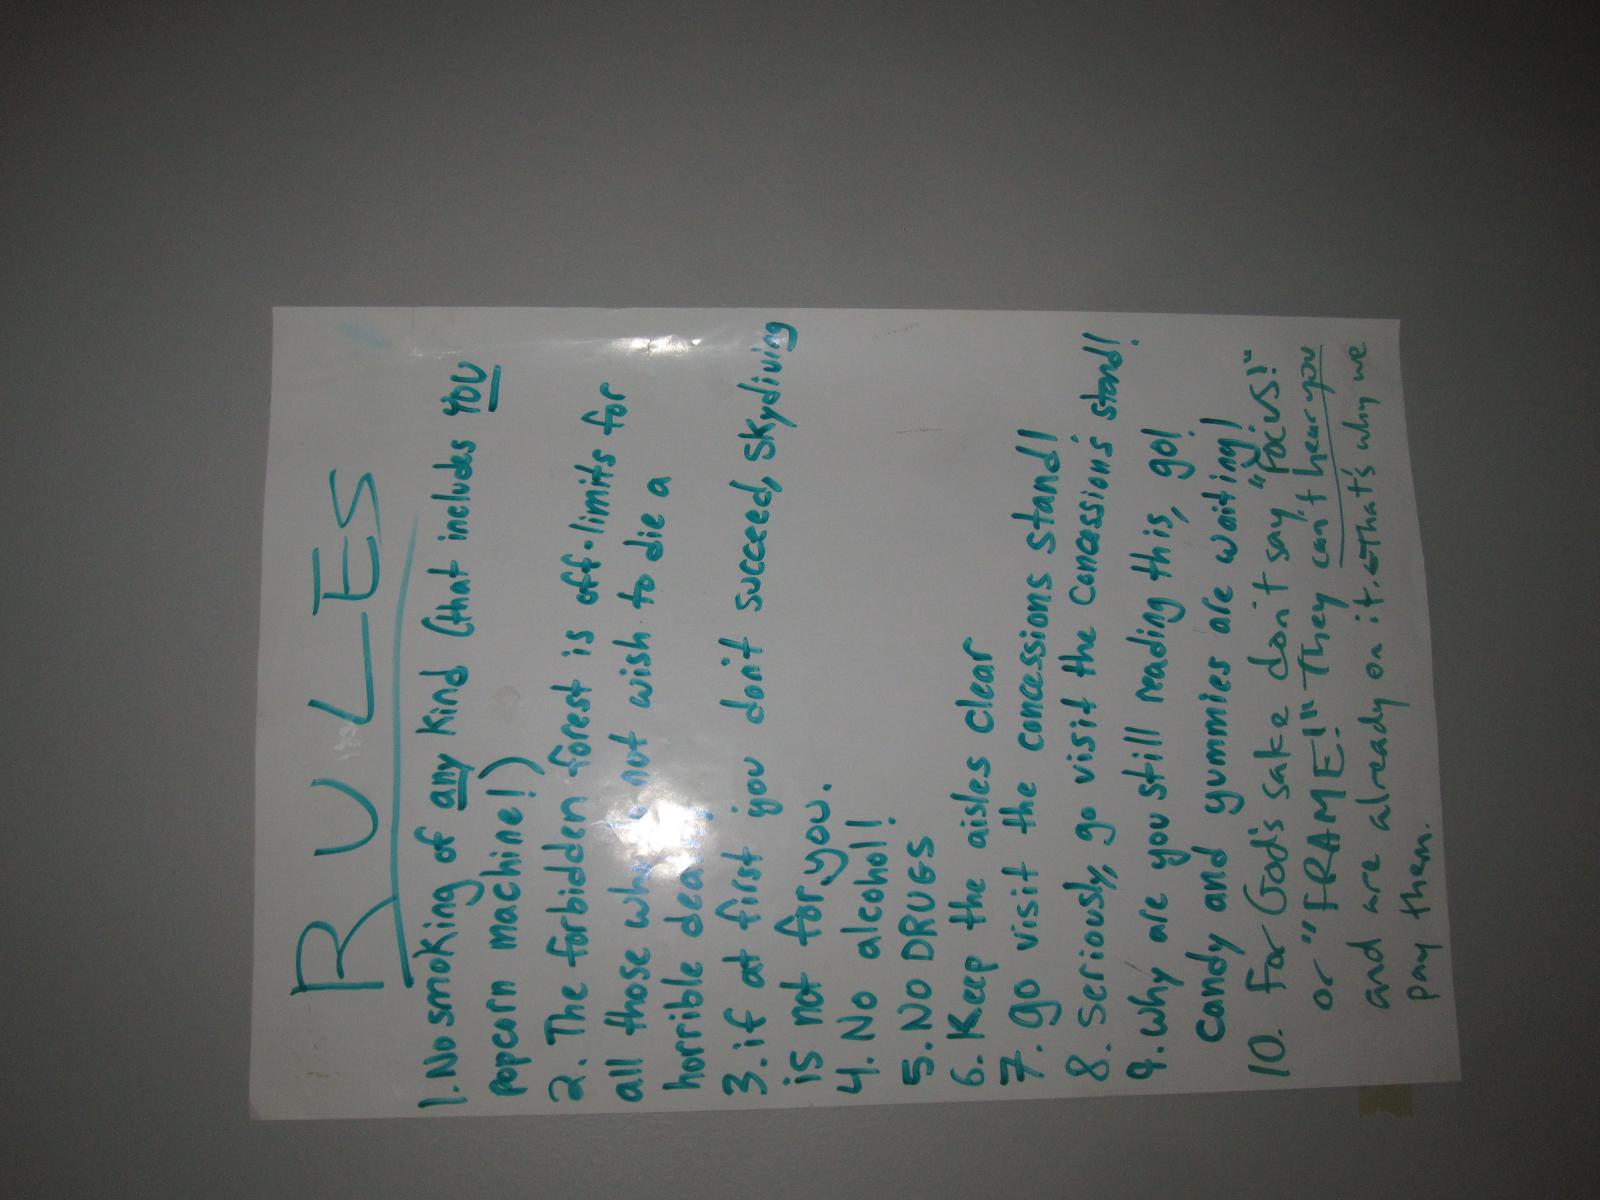 RULES
1. No smoking of any kind (that includes YOU
popcorn machine!)
2. The forbidden forest is off-limits for
all those who not wish to die a
horrible
3. if at first you don't succeed, skydiving
is not for you.
4. No alcohol!
5. NO DRUGS
6. Keep the aisles clear
7. go visit the concessions stand!
8. Seriously, go visit the concessions stand!
9. Why are you still reading this, go!
Candy and yummies are waiting!
10. For God's sake don't say "FOCUS!"
or "FRAME!" They can't hear you
and are already on it. that's why we
pay them.